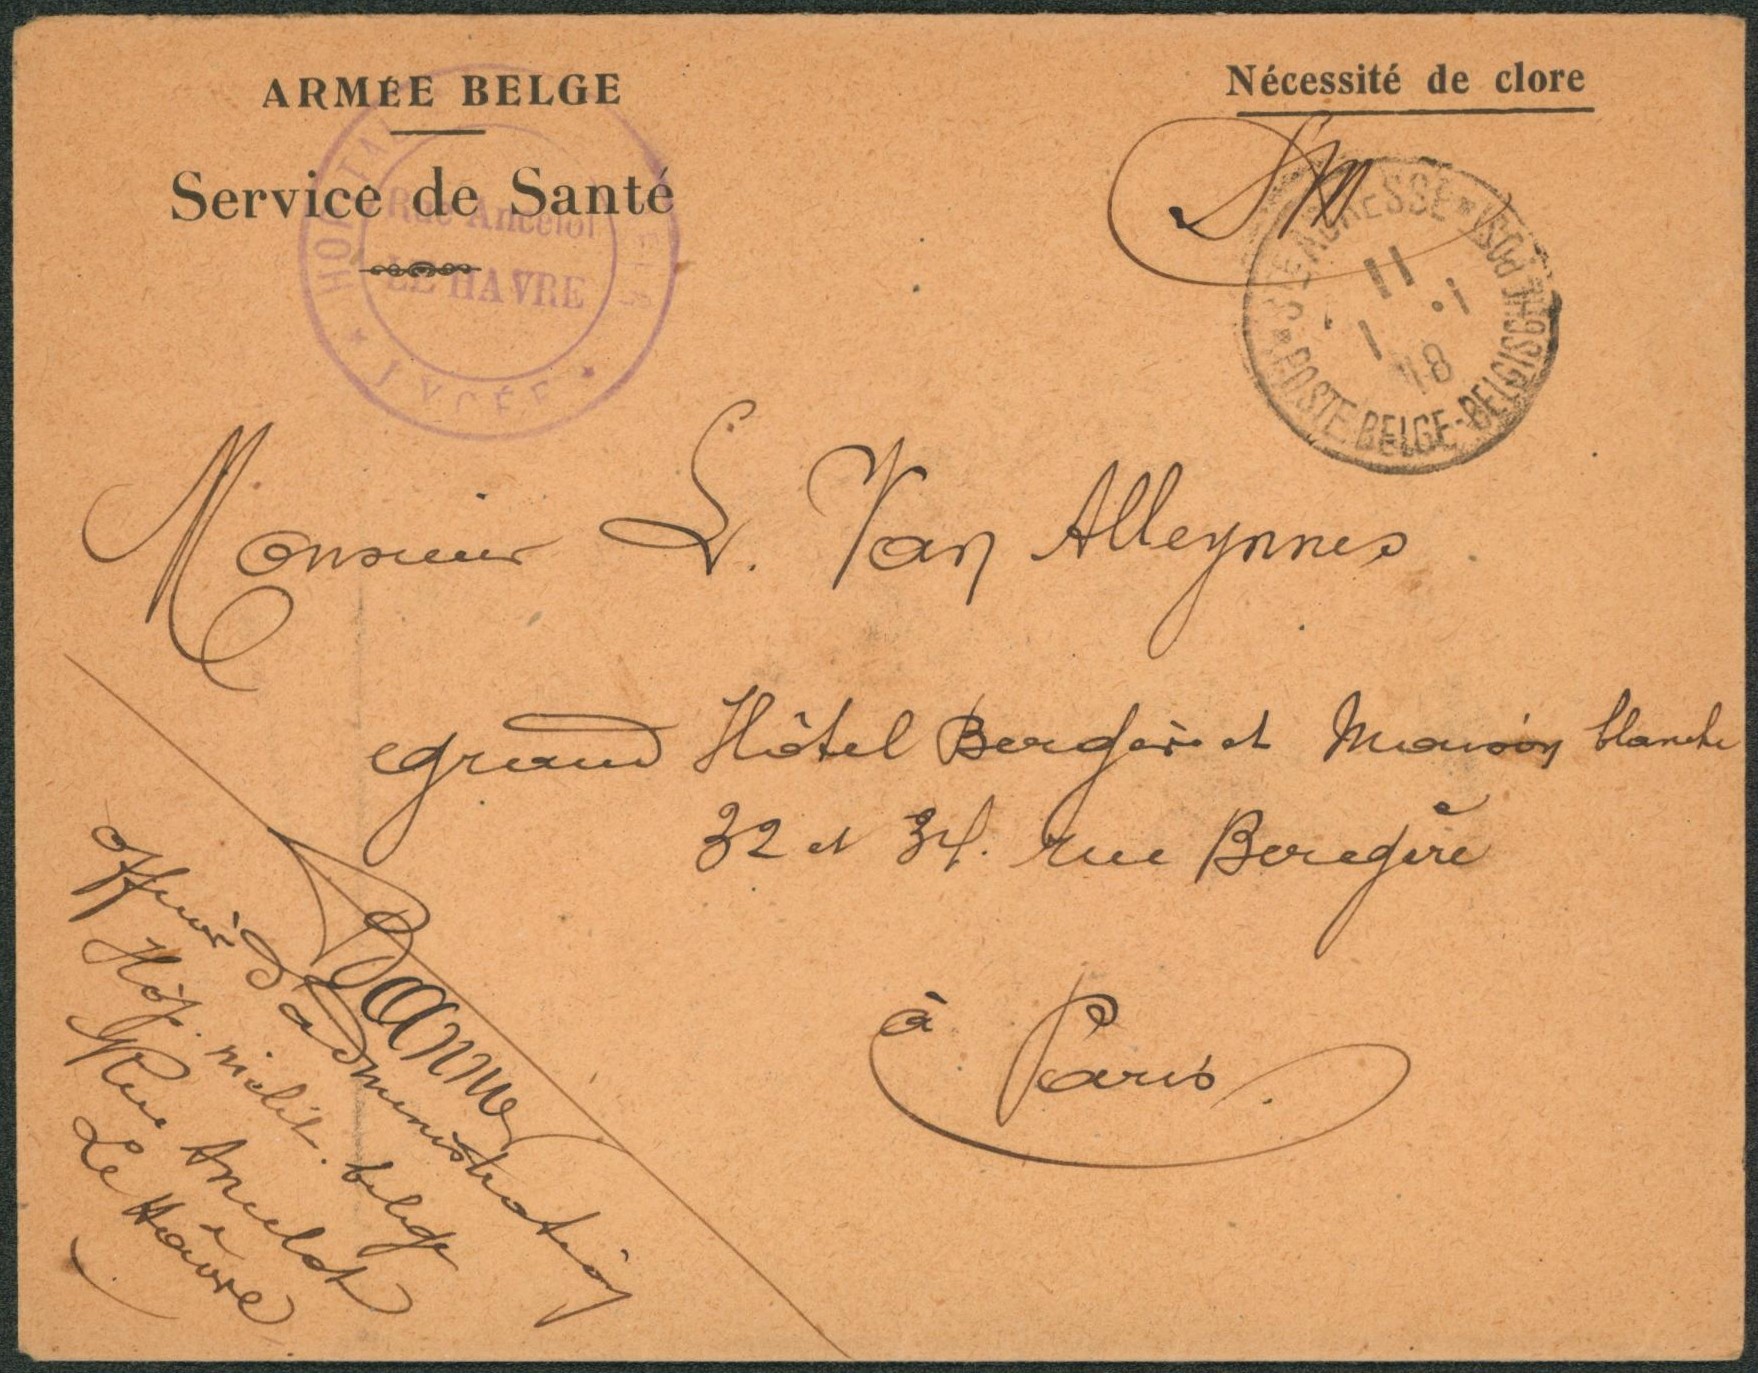 ARMÉE BELGE
Service de Santé
Nécessité de clore
SM
HOPITAL
Rue Ancelot
LE HAVRE
* LYCÉE *
STE ADRESSE * POSTE BELGE-BELGISCHE POST *
11
1
18
Monsieur L. Van Alleynnes
grand Hôtel Bergère et Maison blanche
32 et 34. rue Bergère
à Paris.
Danne
officier d'administration
Hôp. milit. belge
Rue Ancelot
Le Havre